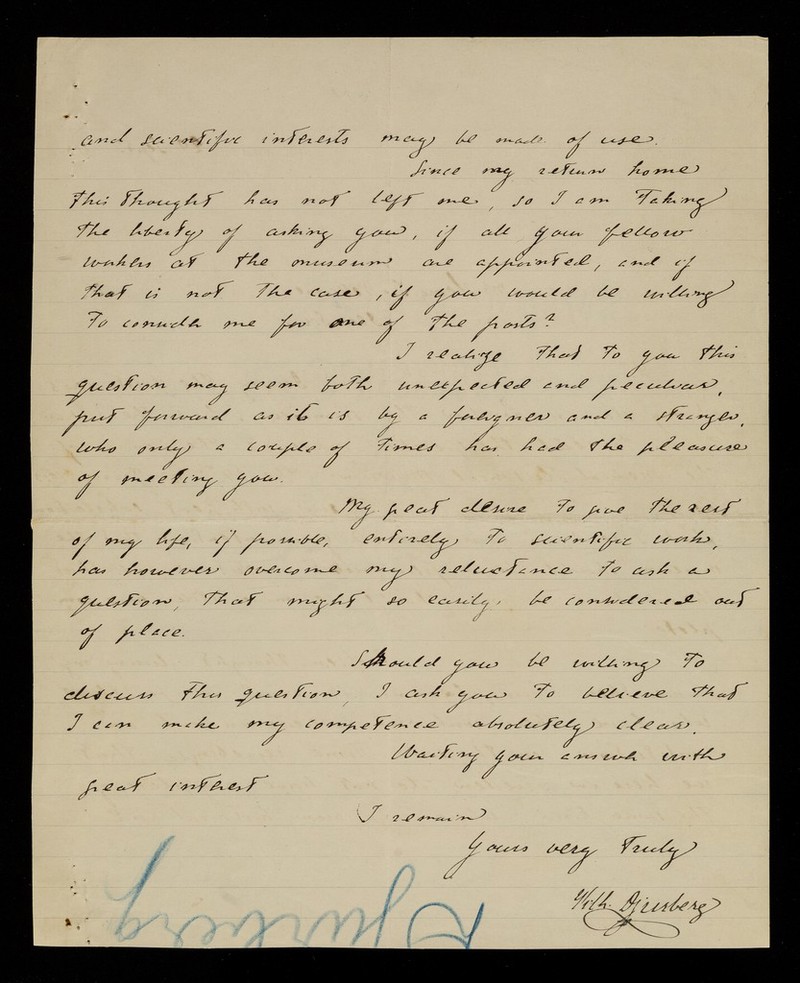 and scientific interests may be made of use.
Since my return home
this thought has not left me, so I am taking
the liberty of asking you, if all your fellow
workers at the museum are appointed, and if
that is not the case, if you would be willing
to consider me for one of the posts?
I realize that to you this
question may seem both unexpected and peculiar,
put forward as it is by a foreigner and a stranger,
who only a couple of times has had the pleasure
of meeting you.
My great desire to give the rest
of my life, if possible, entirely to scientific work,
has however overcome my reluctance to ask a
question, that might so easily be considered out
of place.
Should you be willing to
discuss this question, I ask you to believe that
I can make my competence absolutely clear.
Waiting your answer with
great interest
I remain
Yours very truly
Vilh. Djurberg
Djurberg